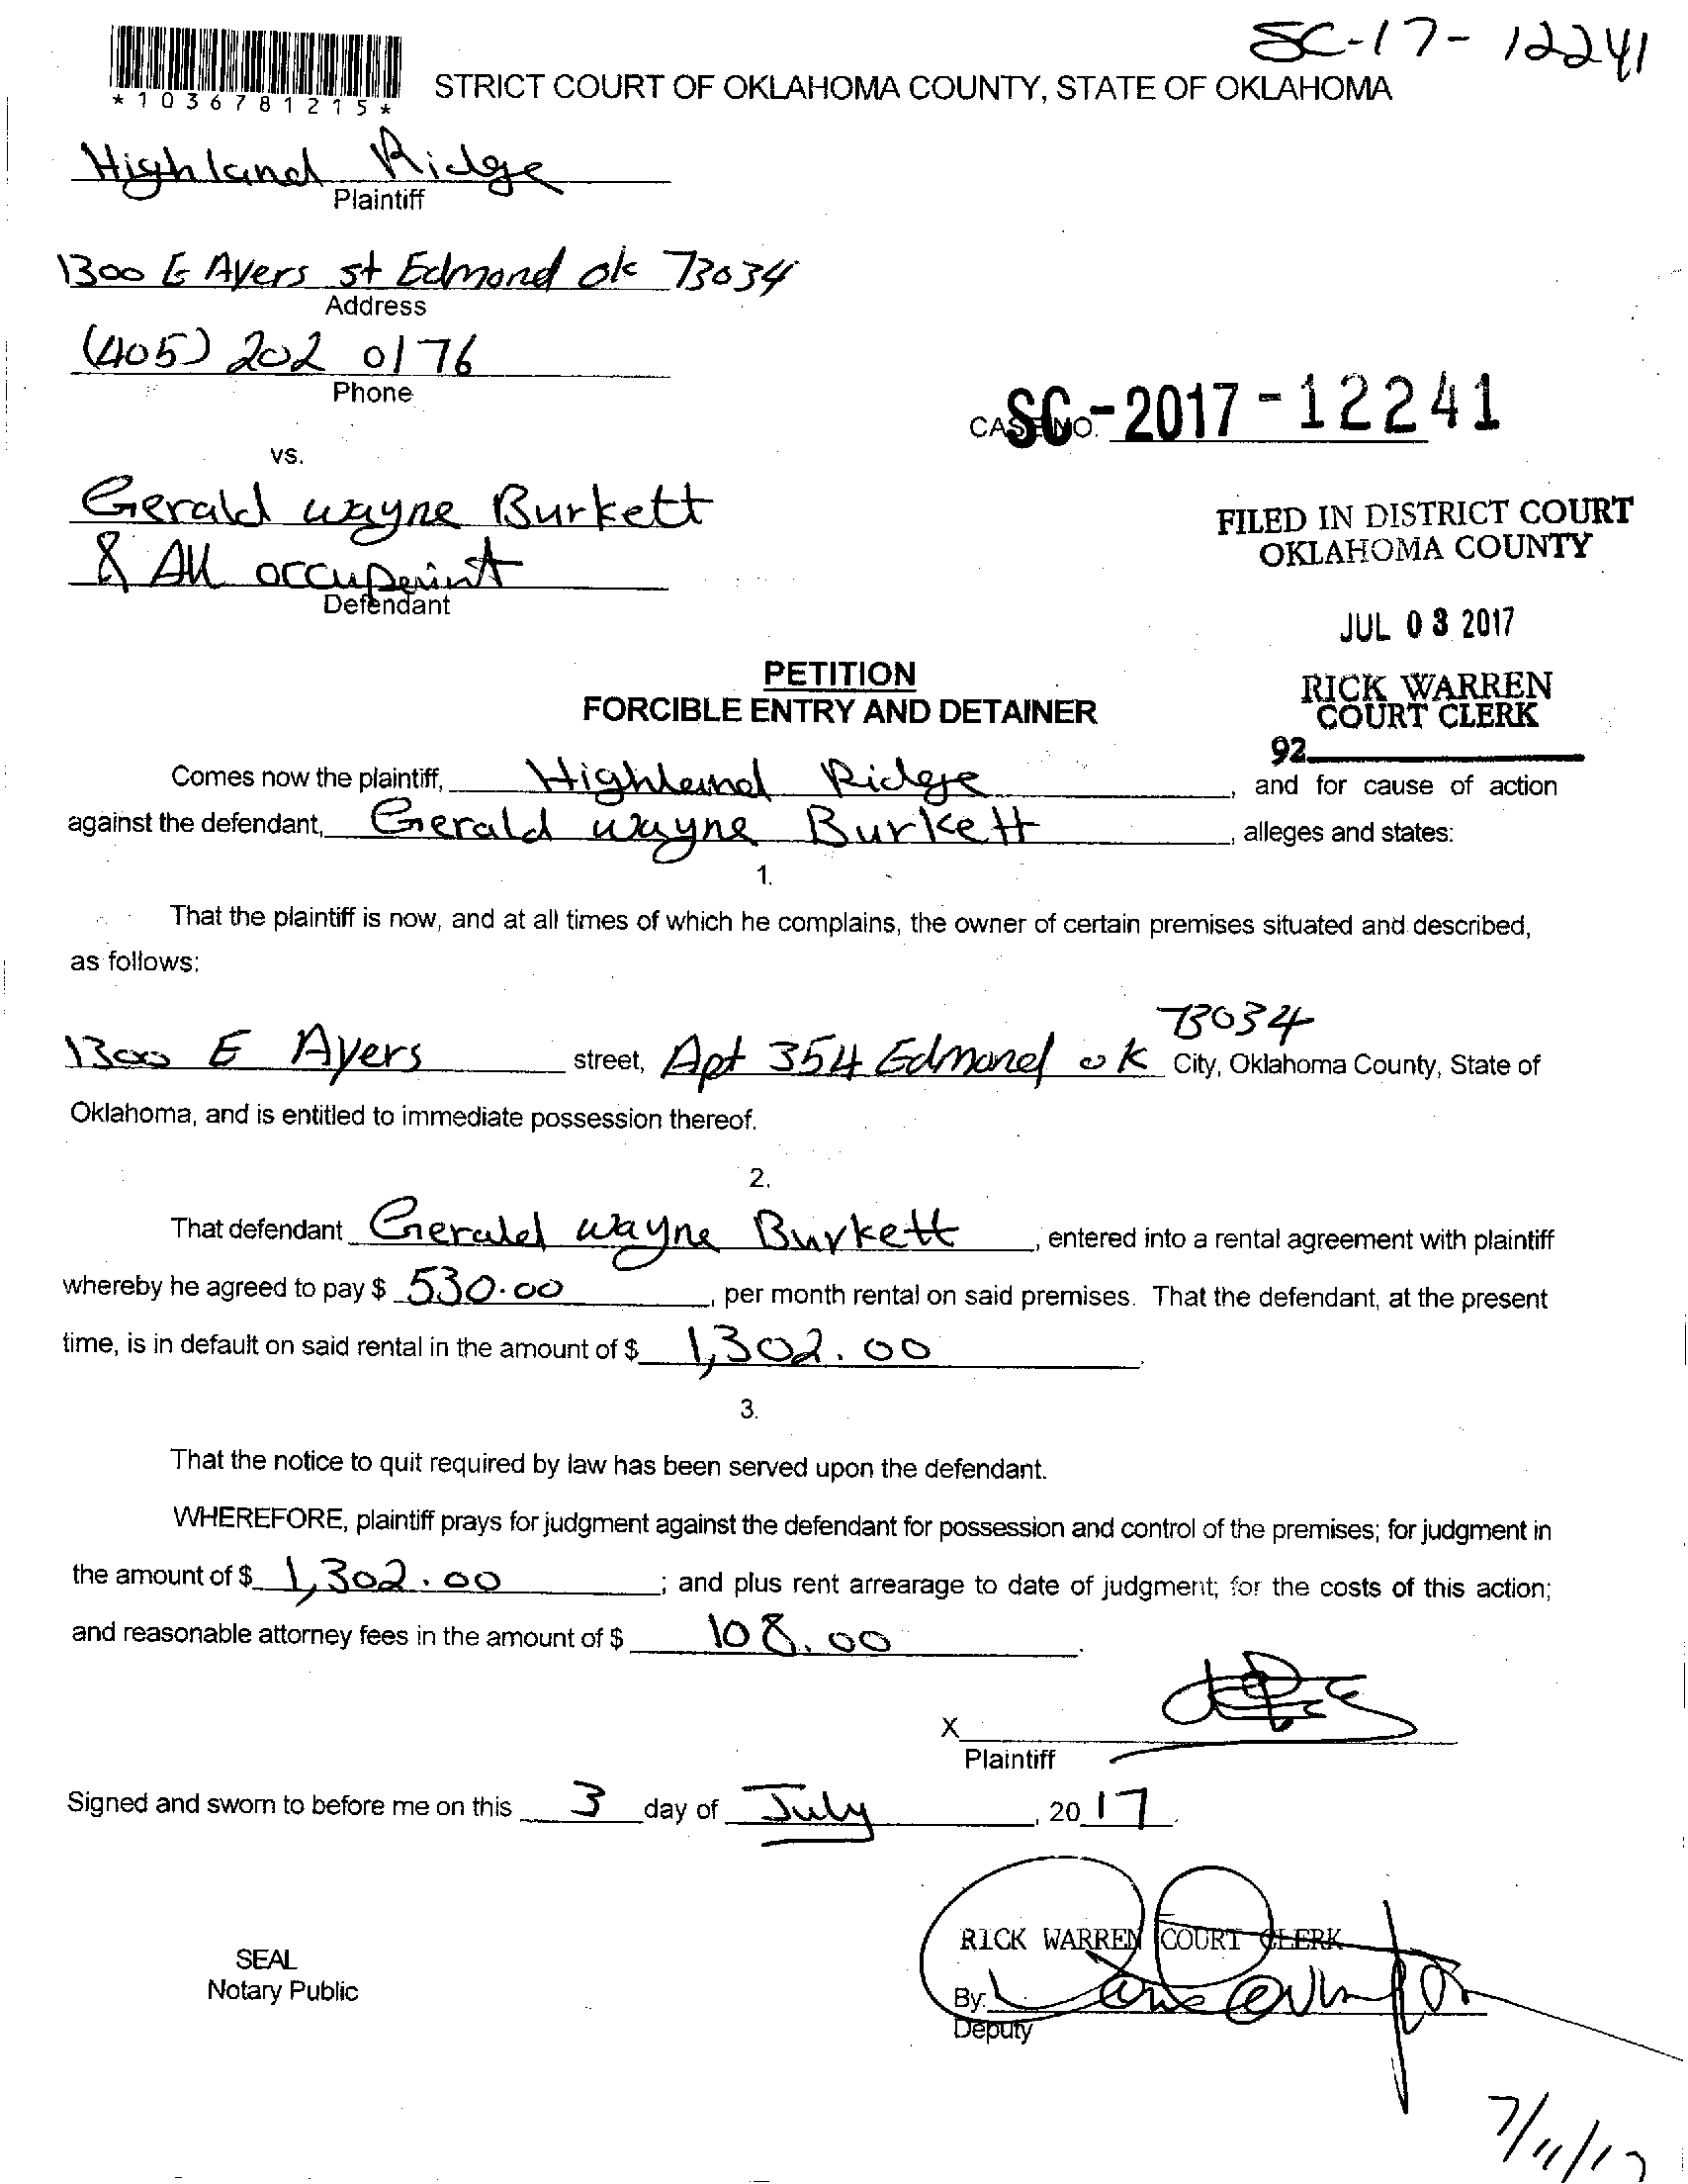 SC-17-12241
*1036781215*
STRICT COURT OF OKLAHOMA COUNTY, STATE OF OKLAHOMA
Highland Ridge
Plaintiff
1300 E Ayers st Edmond ok 73034
Address
(405) 202 0176
Phone
CASE NO. SC-2017-12241
vs.
Gerald wayne Burkett
& All occupaint
Defendant
FILED IN DISTRICT COURT
OKLAHOMA COUNTY
JUL 03 2017
RICK WARREN
COURT CLERK
92
PETITION
FORCIBLE ENTRY AND DETAINER
Comes now the plaintiff, Highland Ridge, and for cause of action
against the defendant, Gerald wayne Burkett, alleges and states:
1.
That the plaintiff is now, and at all times of which he complains, the owner of certain premises situated and described,
as follows:
73034
1300 E Ayers street, Apt 354 Edmond ok City, Oklahoma County, State of
Oklahoma, and is entitled to immediate possession thereof.
2.
That defendant Gerald wayne Burkett, entered into a rental agreement with plaintiff
whereby he agreed to pay $ 530.00, per month rental on said premises. That the defendant, at the present
time, is in default on said rental in the amount of $ 1,302.00.
3.
That the notice to quit required by law has been served upon the defendant.
WHEREFORE, plaintiff prays for judgment against the defendant for possession and control of the premises; for judgment in
the amount of $ 1,302.00; and plus rent arrearage to date of judgment; for the costs of this action;
and reasonable attorney fees in the amount of $ 108.00.
X
Plaintiff
Signed and sworn to before me on this 3 day of July, 2017.
RICK WARREN COURT CLERK
SEAL
Notary Public
By:
Deputy
7/11/17